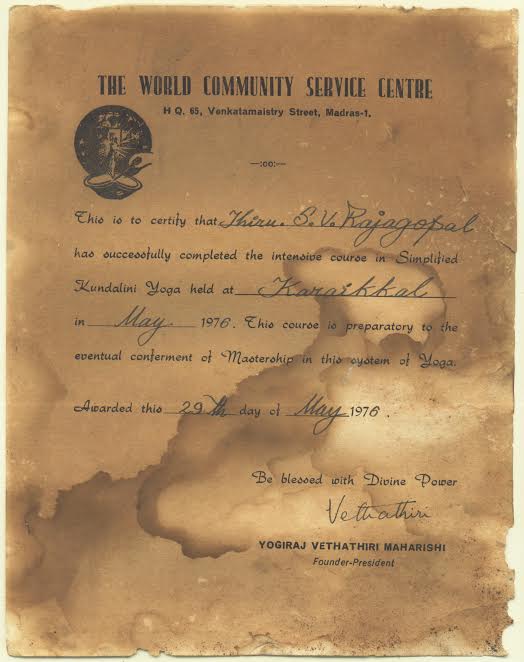 THE WORLD COMMUNITY SERVICE CENTRE
H Q. 65, Venkatamaistry Street, Madras-1.
—:oo:—
This is to certify that Thiru. S. V. Rajagopal
has successfully completed the intensive course in Simplified
Kundalini Yoga held at Karaikkal
in May 1976. This course is preparatory to the
eventual conferment of Mastership in this system of Yoga.
Awarded this 29th day of May 1976.
Be blessed with Divine Power
Vethathiri
YOGIRAJ VETHATHIRI MAHARISHI
Founder-President